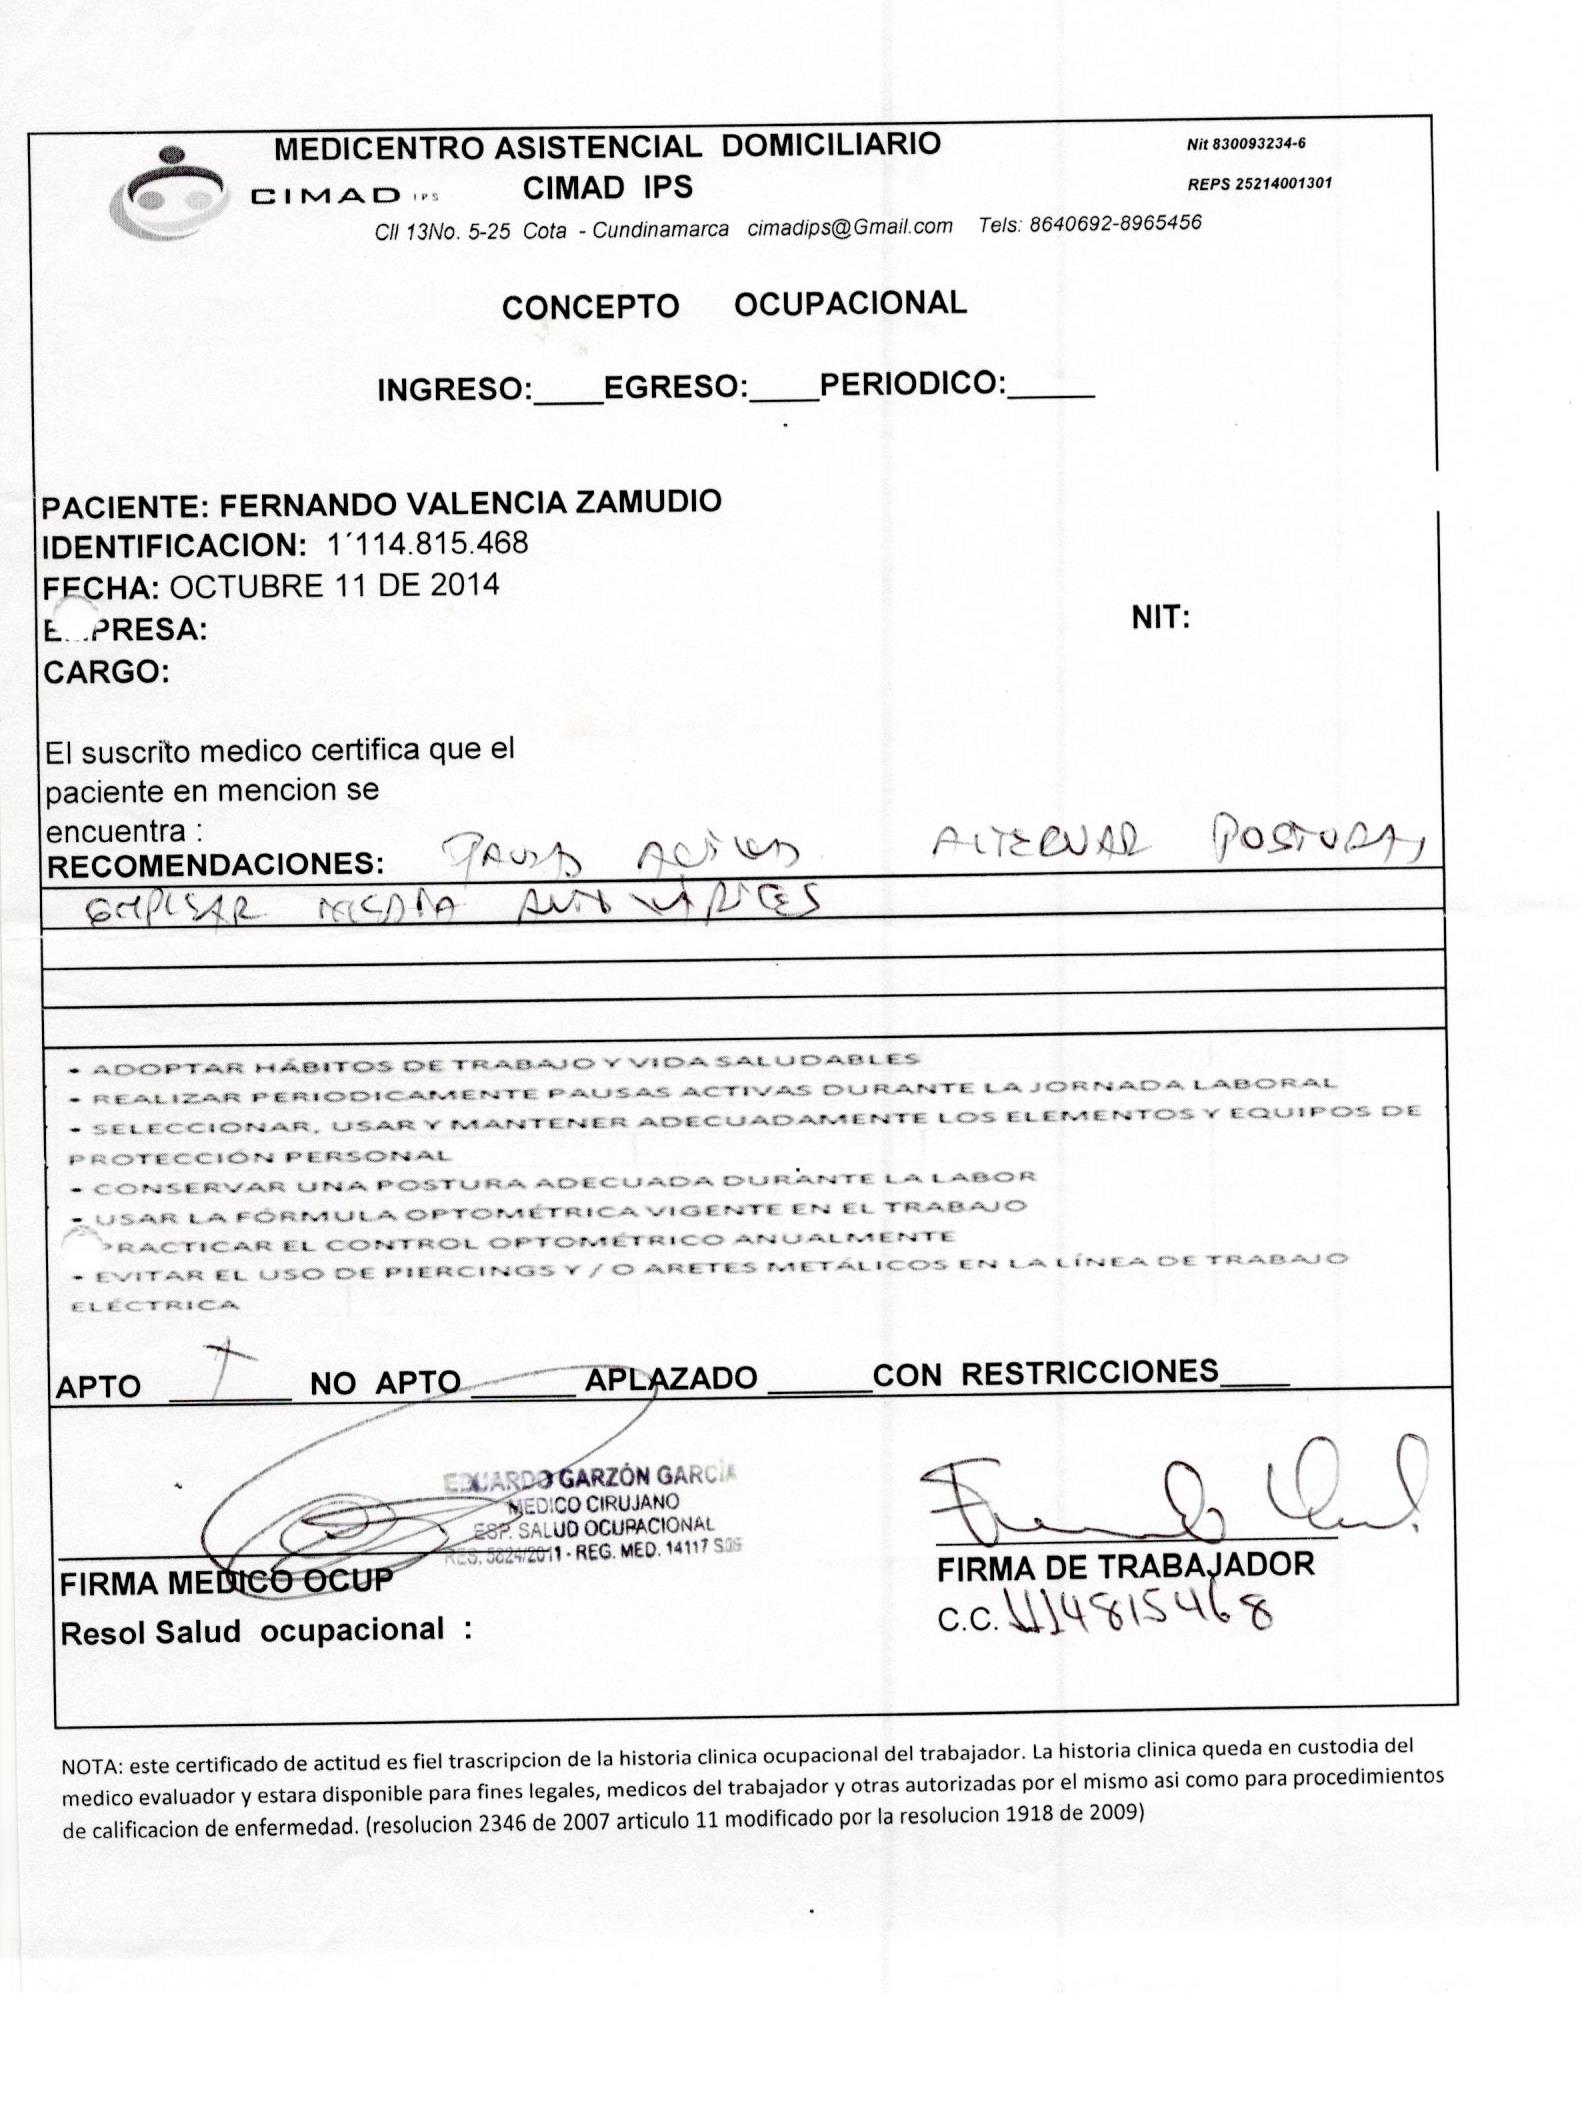 MEDICENTRO ASISTENCIAL DOMICILIARIO
Nit 830093234-6
CIMAD IPS CIMAD IPS
REPS 25214001301
Cll 13No. 5-25 Cota - Cundinamarca cimadips@Gmail.com Tels: 8640692-8965456
CONCEPTO OCUPACIONAL
INGRESO:____EGRESO:____PERIODICO:_____
PACIENTE: FERNANDO VALENCIA ZAMUDIO
IDENTIFICACION: 1´114.815.468
FECHA: OCTUBRE 11 DE 2014
E...PRESA: NIT:
CARGO:
El suscrito medico certifica que el
paciente en mencion se
encuentra :
RECOMENDACIONES: ALTERNAR POSTURA,
MEDIA ANTIVARICES
- ADOPTAR HÁBITOS DE TRABAJO Y VIDA SALUDABLES
- REALIZAR PERIODICAMENTE PAUSAS ACTIVAS DURANTE LA JORNADA LABORAL
- SELECCIONAR, USAR Y MANTENER ADECUADAMENTE LOS ELEMENTOS Y EQUIPOS DE
PROTECCIÓN PERSONAL
- CONSERVAR UNA POSTURA ADECUADA DURANTE LA LABOR
- USAR LA FÓRMULA OPTOMÉTRICA VIGENTE EN EL TRABAJO
PRACTICAR EL CONTROL OPTOMÉTRICO ANUALMENTE
- EVITAR EL USO DE PIERCINGS Y / O ARETES METÁLICOS EN LA LÍNEA DE TRABAJO
ELÉCTRICA
APTO X NO APTO ______ APLAZADO ______CON RESTRICCIONES____
EDUARDO GARZÓN GARCÍA
MEDICO CIRUJANO
ESP. SALUD OCUPACIONAL
RES. 5824/2011 - REG. MED. 14117 SDS
FIRMA MEDICO OCUP
FIRMA DE TRABAJADOR
Resol Salud ocupacional :
C.C. 1114815468
NOTA: este certificado de actitud es fiel trascripcion de la historia clinica ocupacional del trabajador. La historia clinica queda en custodia del
medico evaluador y estara disponible para fines legales, medicos del trabajador y otras autorizadas por el mismo asi como para procedimientos
de calificacion de enfermedad. (resolucion 2346 de 2007 articulo 11 modificado por la resolucion 1918 de 2009)